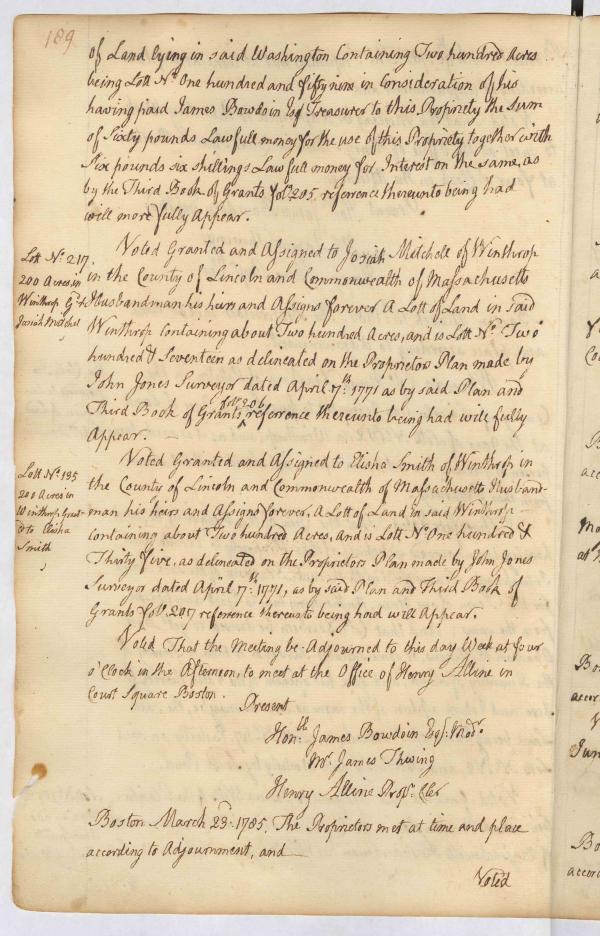 189
of Land lying in said Washington Containing Two hundred Acres
being Lott No. One hundred and fifty nine in Consideration of his
having paid James Bowdoin Esq Treasurer to this Propriety the Sum
of Sixty pounds Lawfull money for the use of this Propriety together with
Six pounds six shillings Lawfull money for Interest on the same, as
by the Third Book of Grants fol. 205. referrence thereunto being had
will more fully Appear.
Lott No. 217.
200 Acres in
Winthrop G-td
Josiah Mitchel
Voted Granted and Assigned to Josiah Mitchell of Winthrop
in the County of Lincoln and Commonwealth of Massachusetts
Husbandman his heirs and Assigns forever A Lott of Land in said
Winthrop Containing about Two hundred Acres, and is Lott No. Two
hundred & Seventeen as delineated on the Proprietors Plan made by
John Jones Surveyor dated April 7th. 1771 as by said Plan and
Third Book of Grants fol. 206 referrence thereunto being had will fully
Appear.
Lott No. 135
200 Acres in
Winthrop Grant-
to Elisha
Smith
Voted Granted and Assigned to Elisha Smith of Winthrop in
the County of Lincoln and Commonwealth of Massachusetts Husband-
man his heirs and Assigns forever, A Lott of Land in said Winthrop
containing about Two hundred Acres, and is Lott No. One hundred &
Thirty five, as delineated on the Proprietors Plan made by John Jones
Surveyor dated April 7th. 1771, as by said Plan and Third Book of
Grants fol. 207 reference thereunto being had will Appear.
Voted That the Meeting be Adjourned to this day Week at four
o'Clock in the Afternoon, to meet at the Office of Henry Alline in
Court Square Boston.
Present
Honble. James Bowdoin Esq. Modr.
Mr. James Thwing
Henry Alline Propr. Cler
Boston March 23d. 1785. The Proprietors met at time and place
according to Adjournment, and
Voted